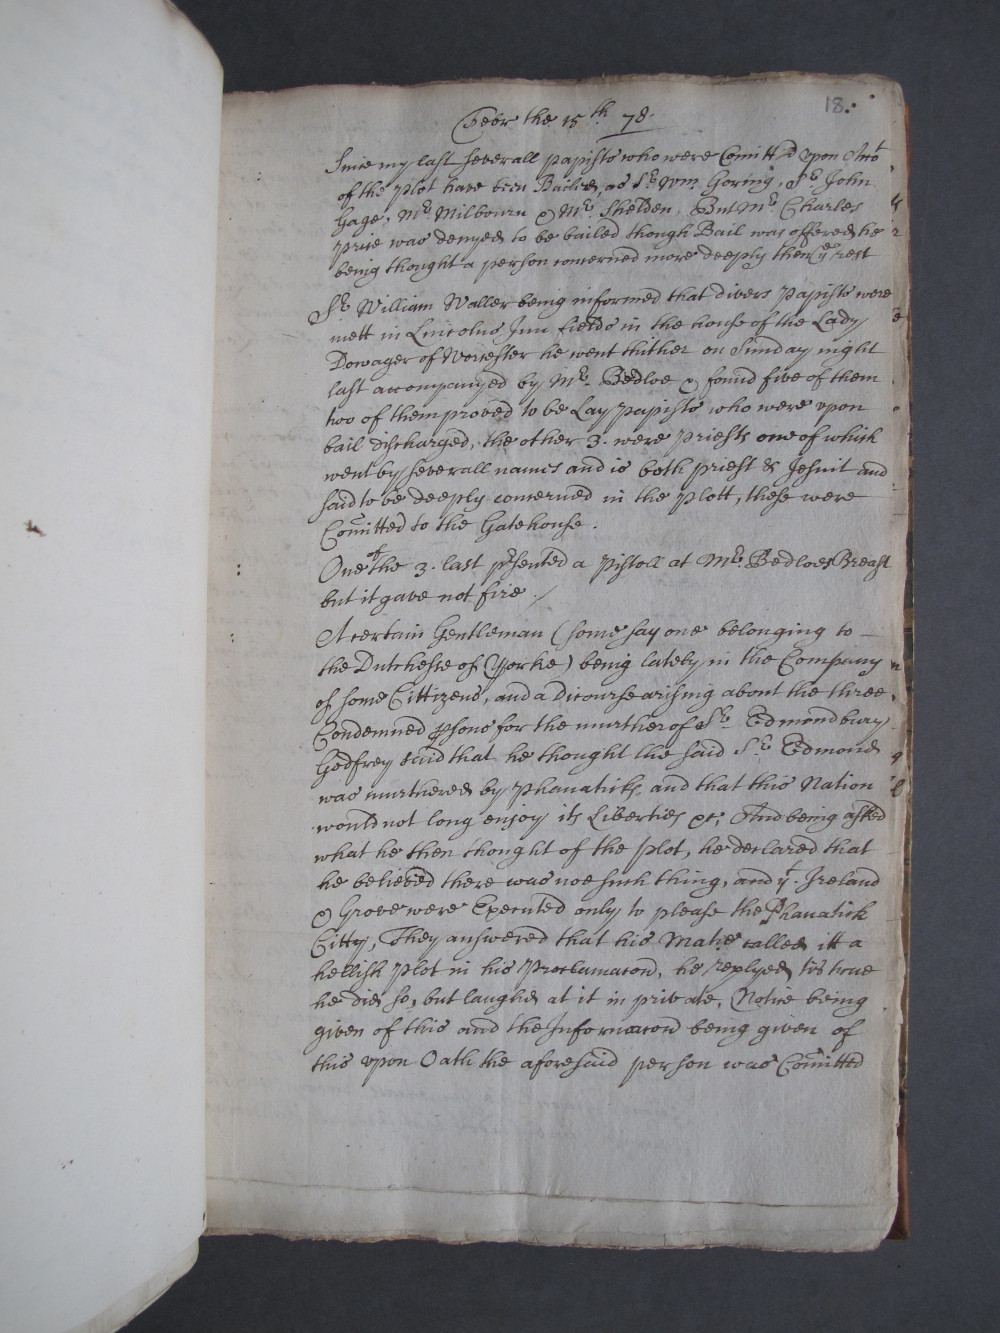 18.
Febr the 15th 78
Since my last severall papists who were Comitt'd upon Acco:t
of the plot have been Bailed, as Sr Wm. Goring, Sr. John
Gage, Mr. Milbourn & Mr. Shelden, But Mr. Charles
price was denyed to be bailed though Bail was offered, he
being thought a person concerned more deeply then ye rest
Sr William Waller being informed that divers papists were
mett in Lincolns Inn fields in the house of the Lady
Dowager of Worcester he went thither on Sunday night
last accompanyed by Mr. Bedloe & found five of them
two of them proved to be Lay papists who were upon
bail discharged, the other 3. were priests one of which
went by severall names and is both priest & Jesuit and
said to be deeply concerned in the plott, these were
Comitted to the Gatehouse.
One of the 3. last prsented a pistoll at Mr. Bedloes Breast
but it gave not fire
A certain Gentleman (some say one belonging to
the Dutchesse of Yorke) being lately in the Company
of some Cittizens, and a dicourse arising about the three
Condemned psons for the murther of Sr Edmondbury
Godfrey said that he thought the said Sr Edmond
was murthered by phanaticks, and that this Nation
would not long enjoy its Liberties &c, And being asked
what he then thought of the plot, he declared that
he believed there was noe such thing, and yt. Ireland
& Grove were Executed only to please the Phanatick
Citty, They answered that his Matie called itt a
hellish plot in his proclamacon, he replyed tis true
he did so, but laughd at it in private, Notice being
given of this and the Informacon being given of
this upon Oath the aforesaid person was Comitted